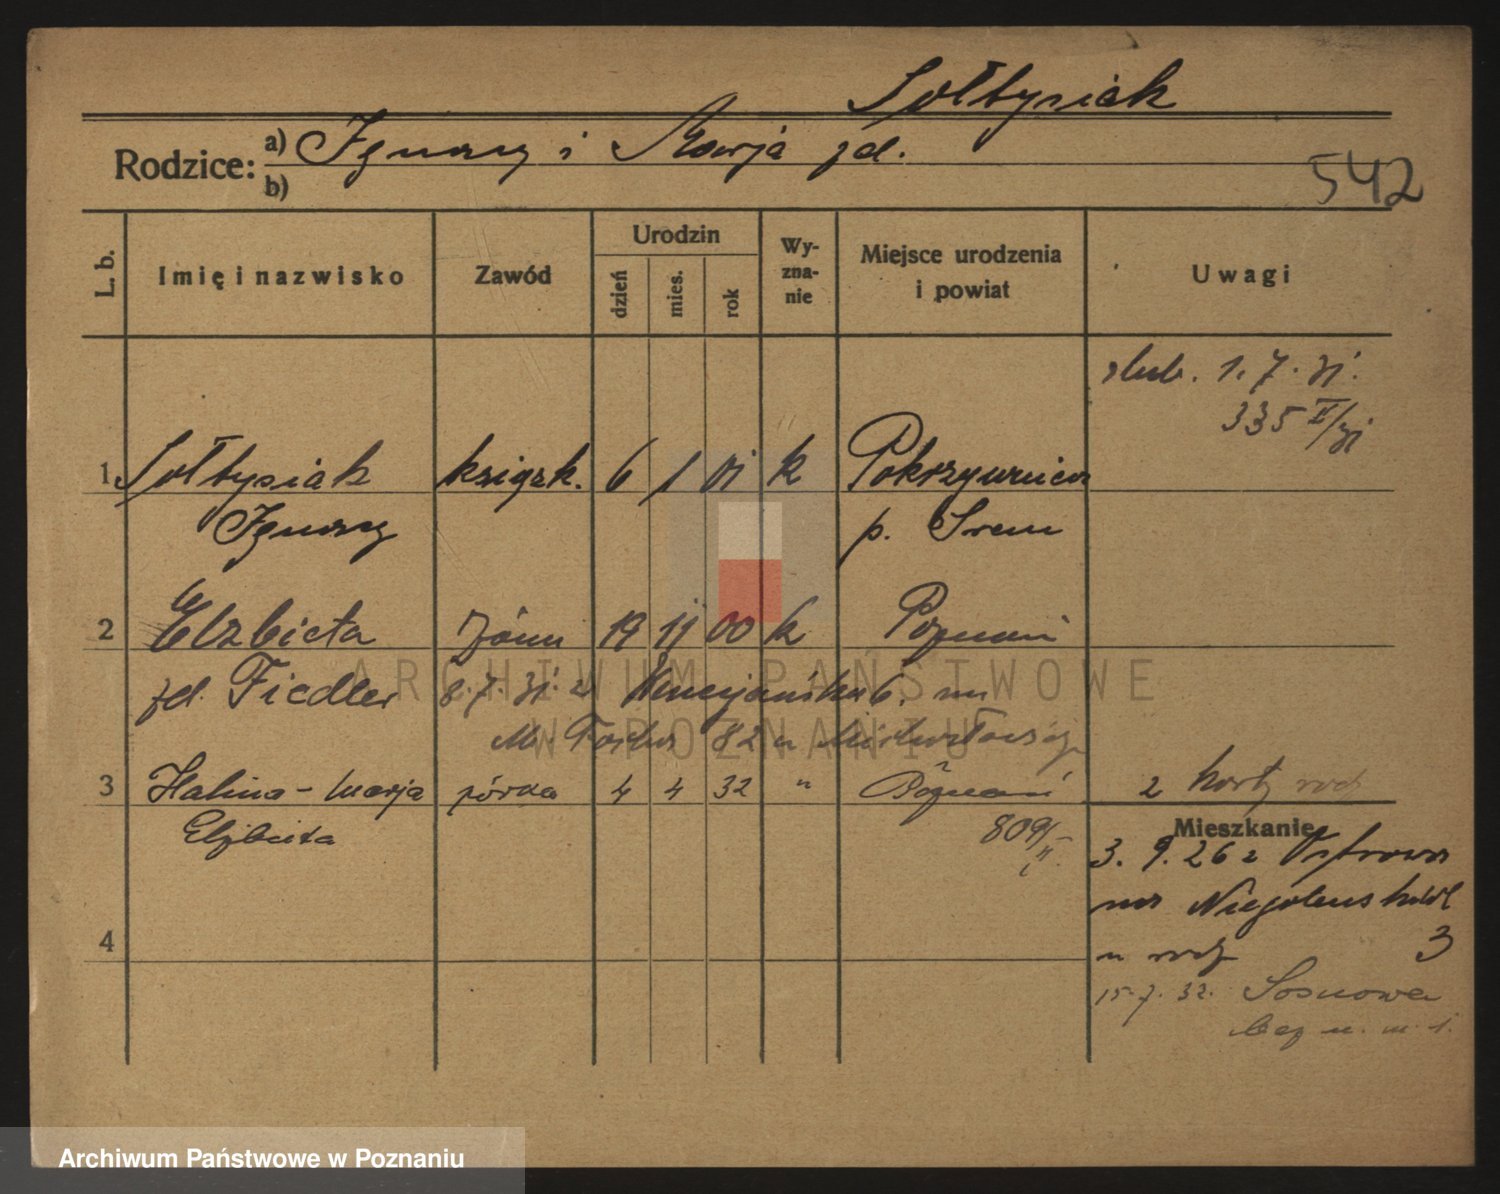 Sołtysiak
Rodzice: a) Ignacy i Marja zd.
b)
542
L. b.
Imię i nazwisko
Zawód
Urodzin
dzień
mies.
rok
Wy-
zna-
nie
Miejsce urodzenia
i powiat
Uwagi
ślub. 1. 7. 31.
335 II/31
1. Sołtysiak książk. 6 1 01 k Pokrzywnica
Ignacy p. Śrem
2 Elżbieta żona 19 11 00 k Poznań
zd. Fiedler 8. 7. 31. z 6. m
M. Focha 82 u
3 Halina - Marja córka 4 4 32 " Poznań
Elżbieta 809/
2 karty rodz
Mieszkanie
3. 9. 26 z Ostrowa
na Niegolewskich
u rodz 3
4
15. 7. 32. Sosnowa
bez n. m. 1.
ARCHIWUM PAŃSTWOWE
W POZNANIU
Archiwum Państwowe w Poznaniu